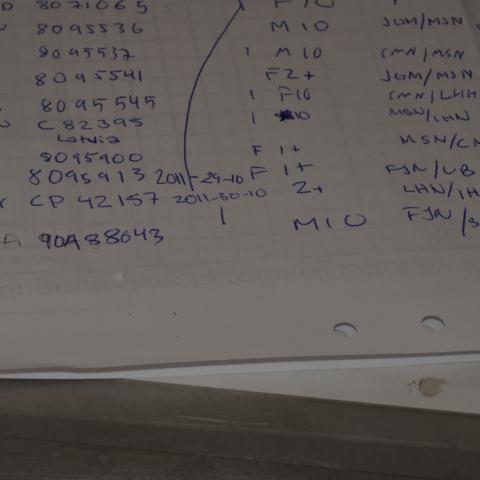 8071065 F10
8095536 M10 JGM/MSN
8095537 1 M10 CMN/MSN
8095541 F2+ JGM/MSN
8095545 1 F10 CMN/LHN
C82395 1 10 MSN/LHN
Latvia
8095900 F 1+ MSN/CM
8095913 2011-29-10 F 1+ FJN/UB
CP 42157 2011-30-10 2+ LHN/
A 90A88643 1 M10 FJN/